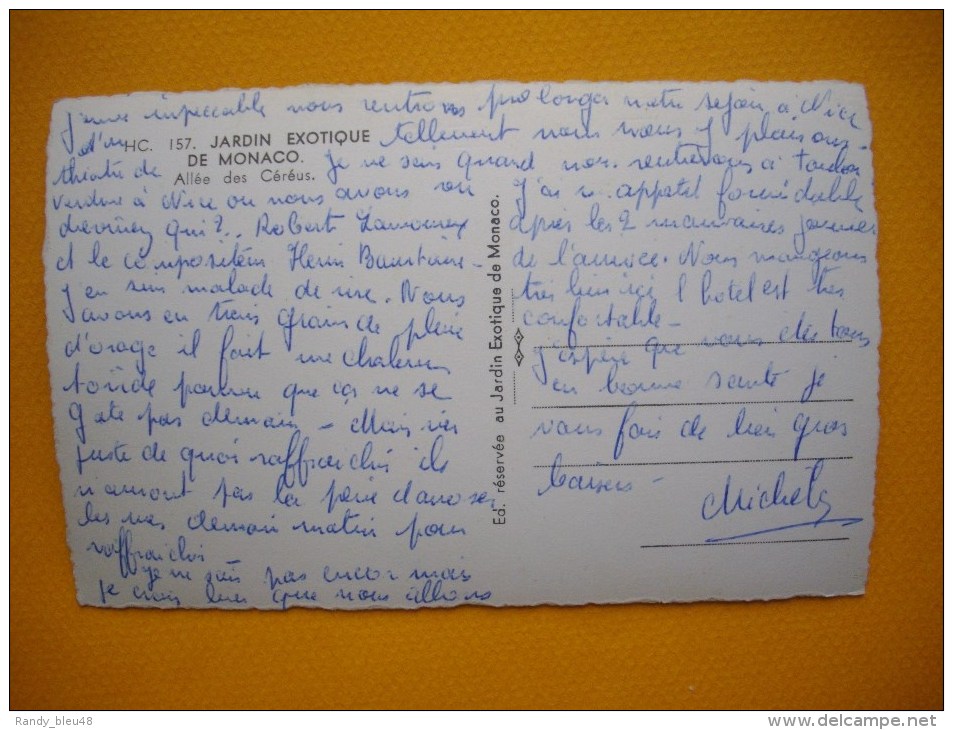 nous rentrons
d'un
HC. 157. JARDIN EXOTIQUE
DE MONACO.
Allée des Céréus.
théatre de
verdure à Nice ou nous avons vu
devinez qui?.. Robert Lamoureux
et le compositeur Henri
J'en suis malade de rire. Nous
avons eu trois grains de pluie
d'orage il fait une chaleur
torride pourvu que ça ne se
gate pas demain - Mais
juste de quoi raffraichir ils
n'auront pas la peine d'arroser
les rues demain matin pour
raffraichir
je ne sais pas encor mais
je crois bien que nous allons
prolonger notre séjour à Nice
tellement nous nous y plaisons.
Je ne sais quand nous rentrerons à Toulon
J'ai un appetit formidable
après les 2 mauvaises journées
de l'arrivée. Nous mangeons
très bien ici l'hotel est très
confortable -
j'espère que vous êtes tous
en bonne santé je
vous fais de bien gros
baisers -
Ed. réservée au Jardin Exotique de Monaco.
Randy_bleu48
delcampe.net